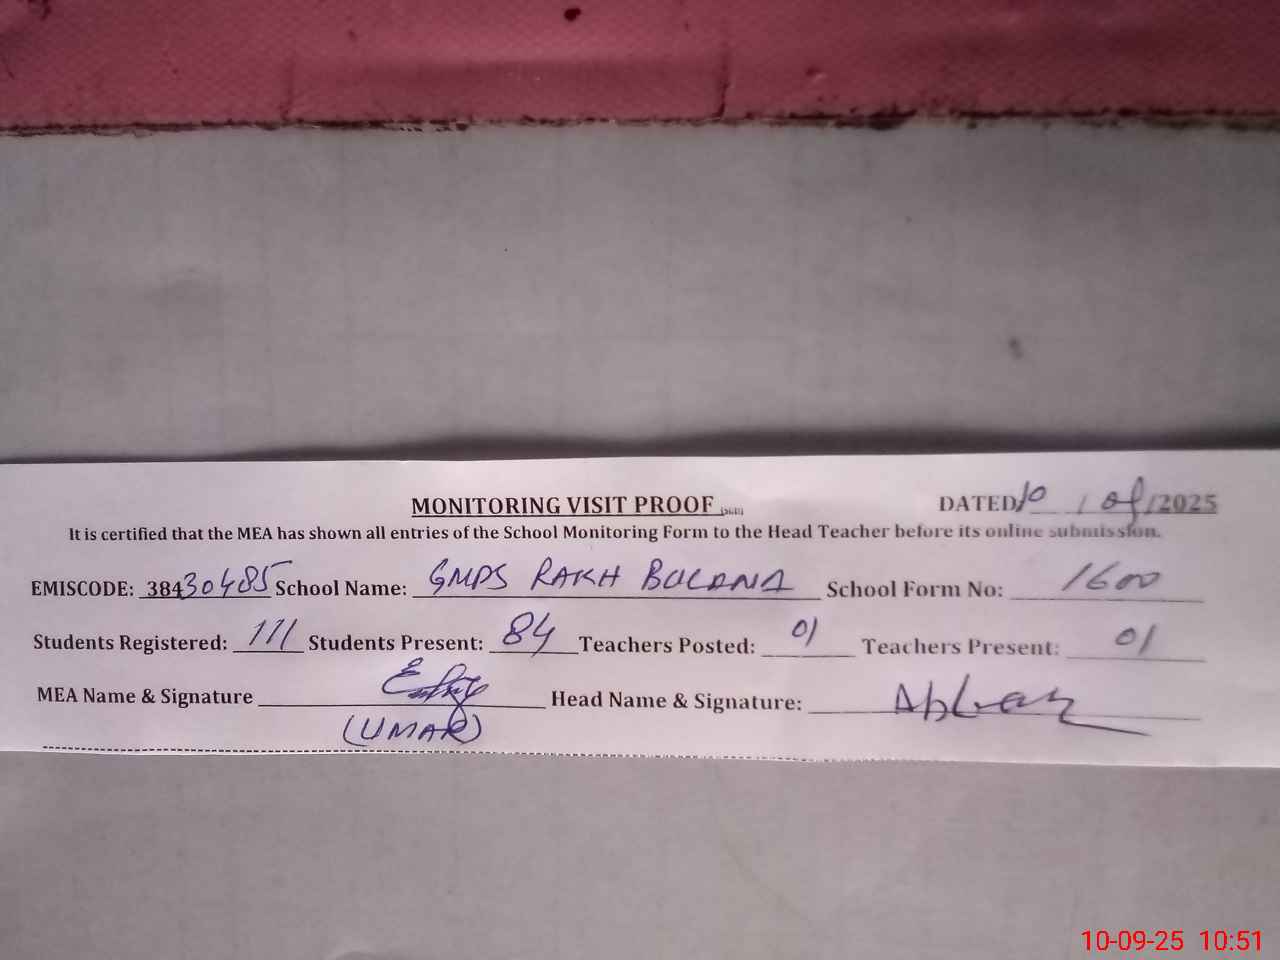 MONITORING VISIT PROOF
DATED 10 / 09 /2025
It is certified that the MEA has shown all entries of the School Monitoring Form to the Head Teacher before its online submission.
EMISCODE: 38430485 School Name: GMPS RAKH BULANA School Form No: 1600
Students Registered: 111 Students Present: 84 Teachers Posted: 01 Teachers Present: 01
MEA Name & Signature Head Name & Signature:
(UMAR)
10-09-25 10:51